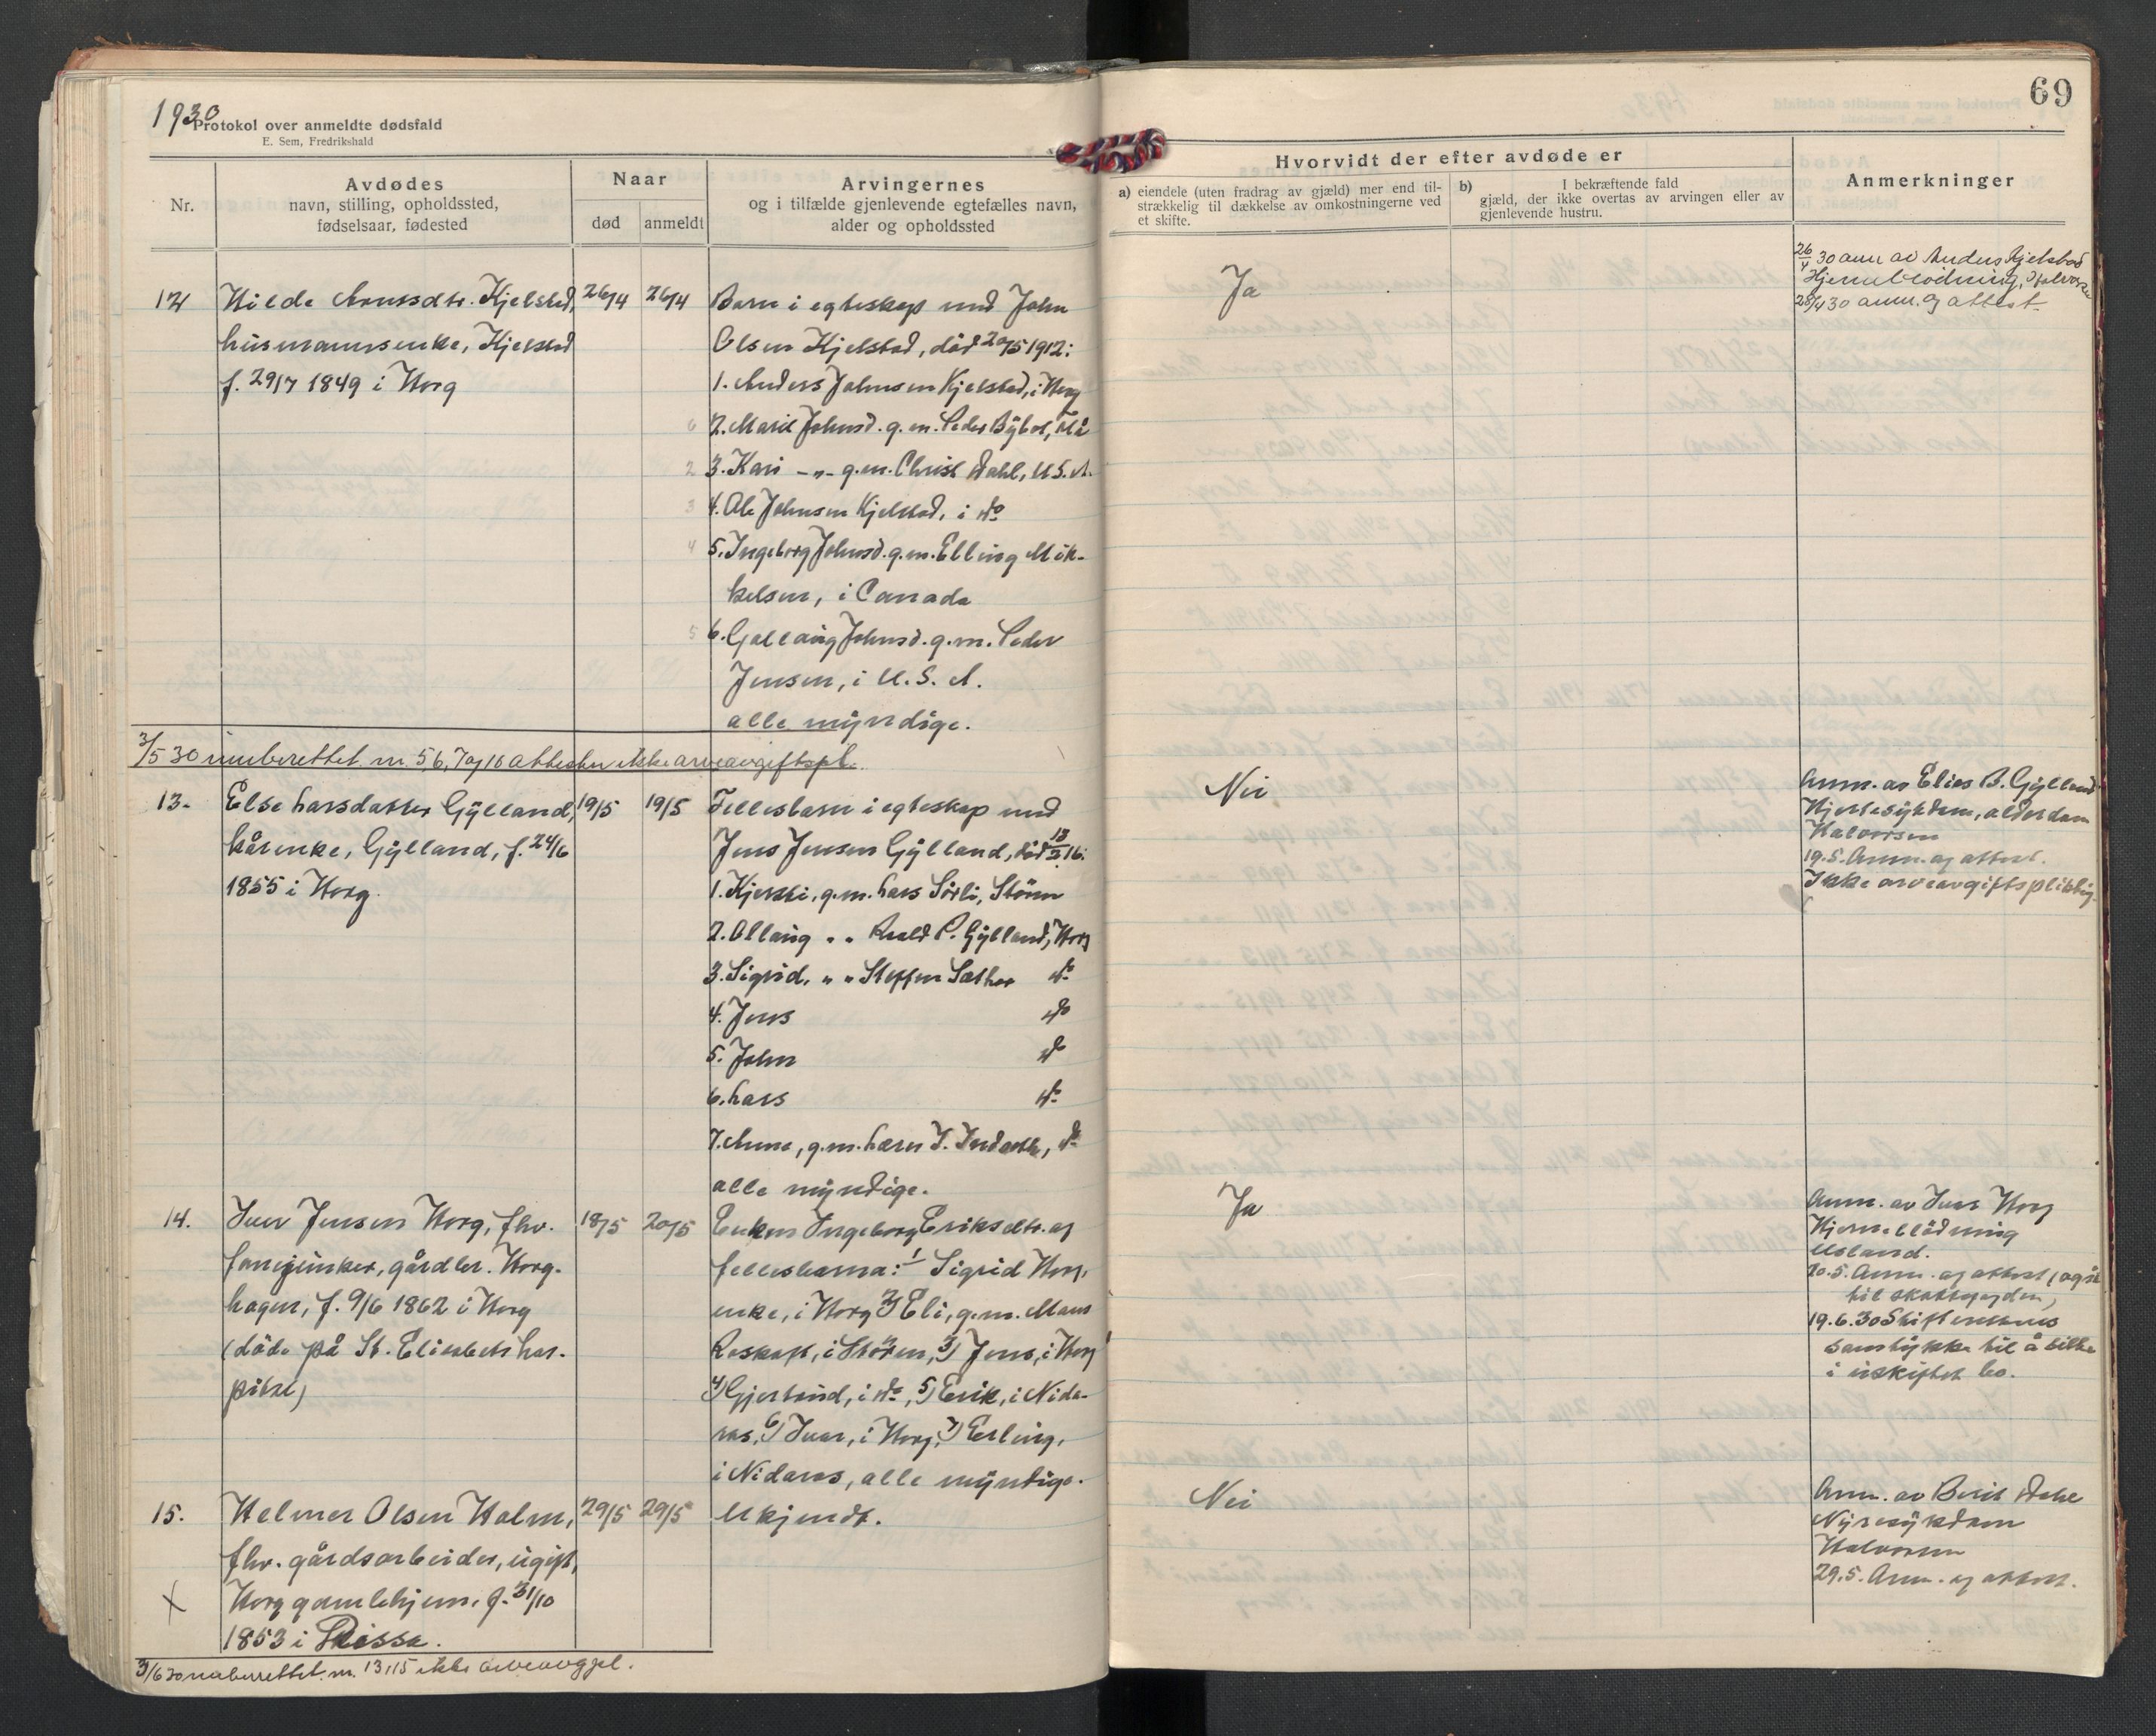 1930
Protokol over anmeldte dødsfald
E. Sem, Fredrikshald
69
Nr.
Avdødes
navn, stilling, opholdssted,
fødselsaar, fødested
Naar
død
anmeldt
Arvingernes
og i tilfælde gjenlevende egtefælles navn,
alder og opholdssted
Hvorvidt der efter avdøde er
a) eiendele (uten fradrag av gjæld) mer end til-
strækkelig til dækkelse av omkostningerne ved
et skifte.
b) I bekræftende fald
gjæld, der ikke overtas av arvingen eller av
gjenlevende hustru.
Anmerkninger
12
Kjelstad,
husmannsenke, Kjelstad
f. 29/7 1849 i Horg
26/4
26/4
Barn i egteskap med John
Olsen Kjelstad, död 20/5 1912:
1. Anders Johnsen Kjelstad, i Horg
2. Marit Johnsd. g.m. Peder Bybot, Flå
3. Kari -„- g.m. Christ Dahl, U.S.A.
4. Ole Johnsen Kjelstad, i do
5. Ingeborg Johnsd. g.m. Elling Mik-
kelsen, i Canada
6. Gollaug Johnsd. g.m. Peder
Jensen, i U.S.A.
alle myndige.
Ja
26/4 30 anm av Anders Kjelstad
Hjerneblödning, Halvorsen
28/4 30 anm. og attest
3/5 30 innberettet nr. 5, 6, 7 og 10 ikke arveavgiftspl.
13.
Else Larsdatter Gylland,
kårenke, Gylland, f. 24/6
1855 i Horg.
19/5
19/5
Fellesbarn i egteskap med
Jens Jensen Gylland, död 13/2 16:
1. Kjersti, g.m. Lars Sörli, Stören
2. Ollaug „ „ Roald P. Gylland, Horg
3. Sigrid, „ „ Steffen Sæther do
4. Jens do
5. John do
6. Lars do
7. Anne, g.m. do
alle myndige.
Nei
Anm. av Elies B. Gylland
Hjertesykdom, alderdom
Halvorsen
19.5. Anm. og attest.
Ikke arveavgiftspliktig.
14.
Iver Jensen Horg, fhv.
fanejunker, gårdbr. Horg-
hagen, f. 9/6 1862 i Horg
(döde på St. Elisabeths hos-
pital)
18/5
20/5
Enken Ingeborg Eriksdtr. og
fellesbarna: 1/ Sigrid Horg,
enke, i Horg 2) Eli, g.m. Mans
Roskaft, i Stören, 3) Jens, i Horg
4) Gjertrud, i do, 5) Erik, i Nida-
ros, 6) Ivar, i Horg, 7) Erling,
i Nidaros, alle myndige.
Ja
Anm. av Ivar Horg
Hjerneblödning
Usland.
20.5. Anm. og attest (også
til skattefogden)
19.6.30 Skifterettens
samtykke til å sitte
i uskiftet bo.
15.
X
Helmer Olsen Holm,
fhv. gårdsarbeider, ugift,
Horg gamlehjem, f. 31/10
1853 i Rissa.
29/5
29/5
Ukjendt.
Nei
Anm. av Berit Dahl
Nyresykdom
Halvorsen
29.5. Anm. og attest.
3/6 30 innberettet nr. 13, 15 ikke arveavgpl.